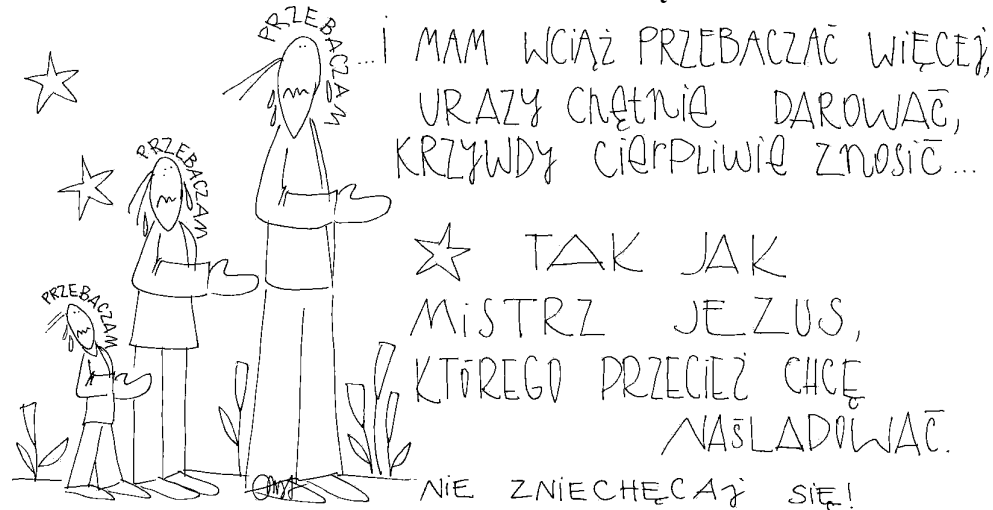 PRZEBACZAM
PRZEBACZAM
PRZEBACZAM
...I MAM WCIĄŻ PRZEBACZAĆ WIĘCEJ,
URAZY CHĘTNIE DAROWAĆ,
KRZYWDY CIERPLIWIE ZNOSIĆ...
TAK JAK
MISTRZ JEZUS,
KTÓREGO PRZECIEŻ CHCĘ
NAŚLADOWAĆ.
NIE ZNIECHĘCAJ SIĘ!